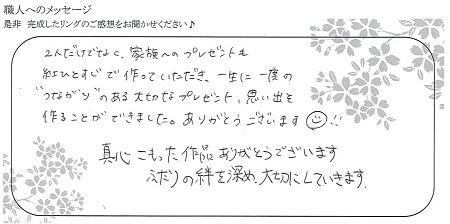 職人へのメッセージ
是非 完成したリングのご感想をお聞かせください♪
2人だけでなく、家族へのプレゼントも
紅ひとすじで作っていただき、一生に一度の
"つながり"のある大切なプレゼント、思い出を
作ることができました。ありがとうございます!!
真心こもった作品ありがとうございます
ふたりの絆を深め、大切にしていきます。